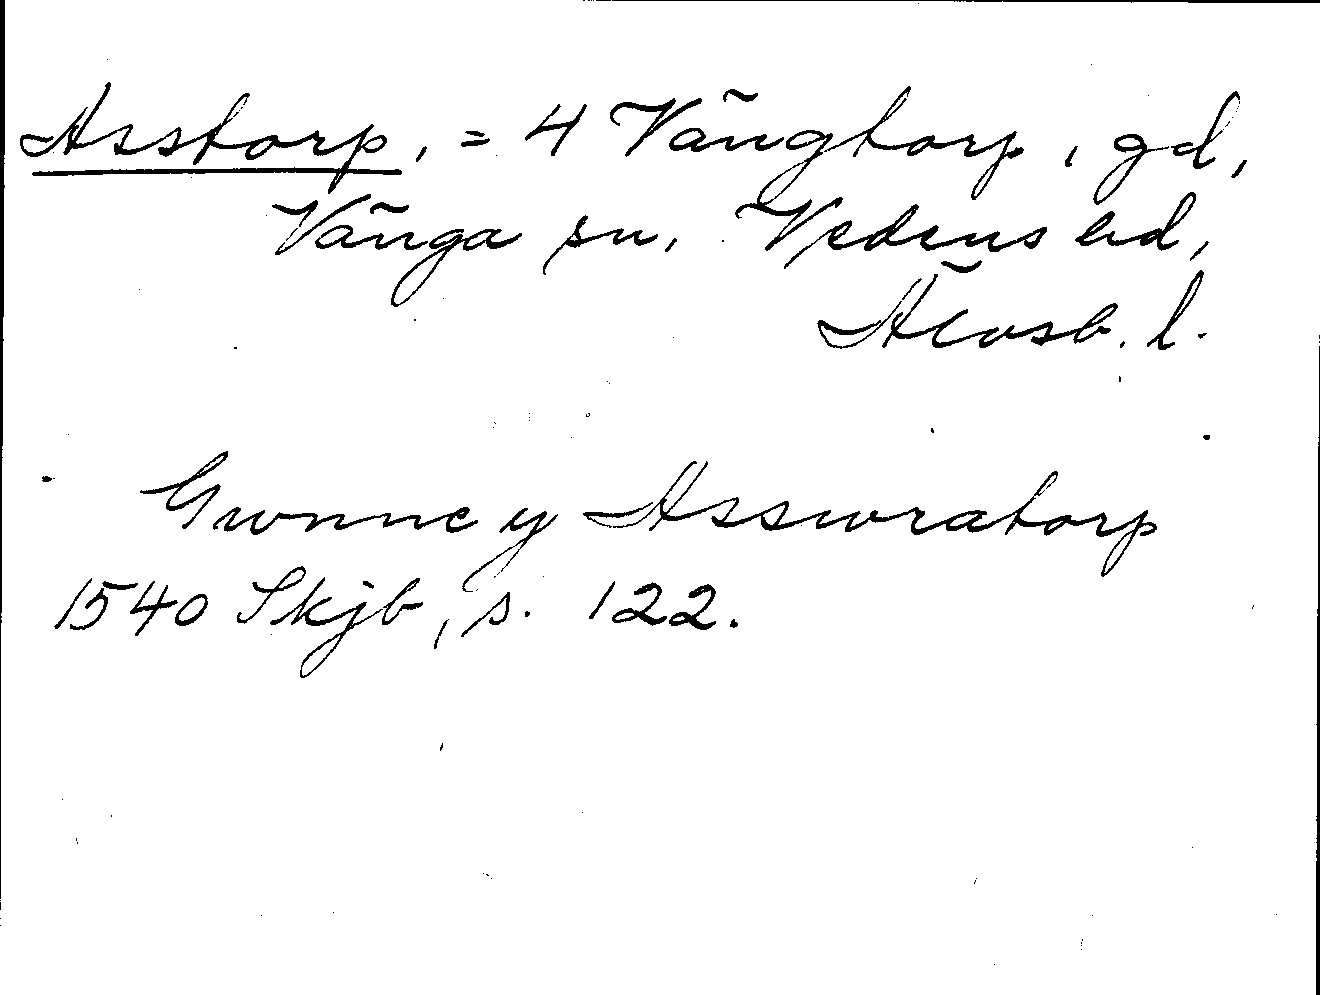 Asstorp, = 4 Vängtorp, gd,
Vänga sn, Vedens hd,
Älvsb. l.
Gwnne y Asswratorp
1540 Skjb, s. 122.